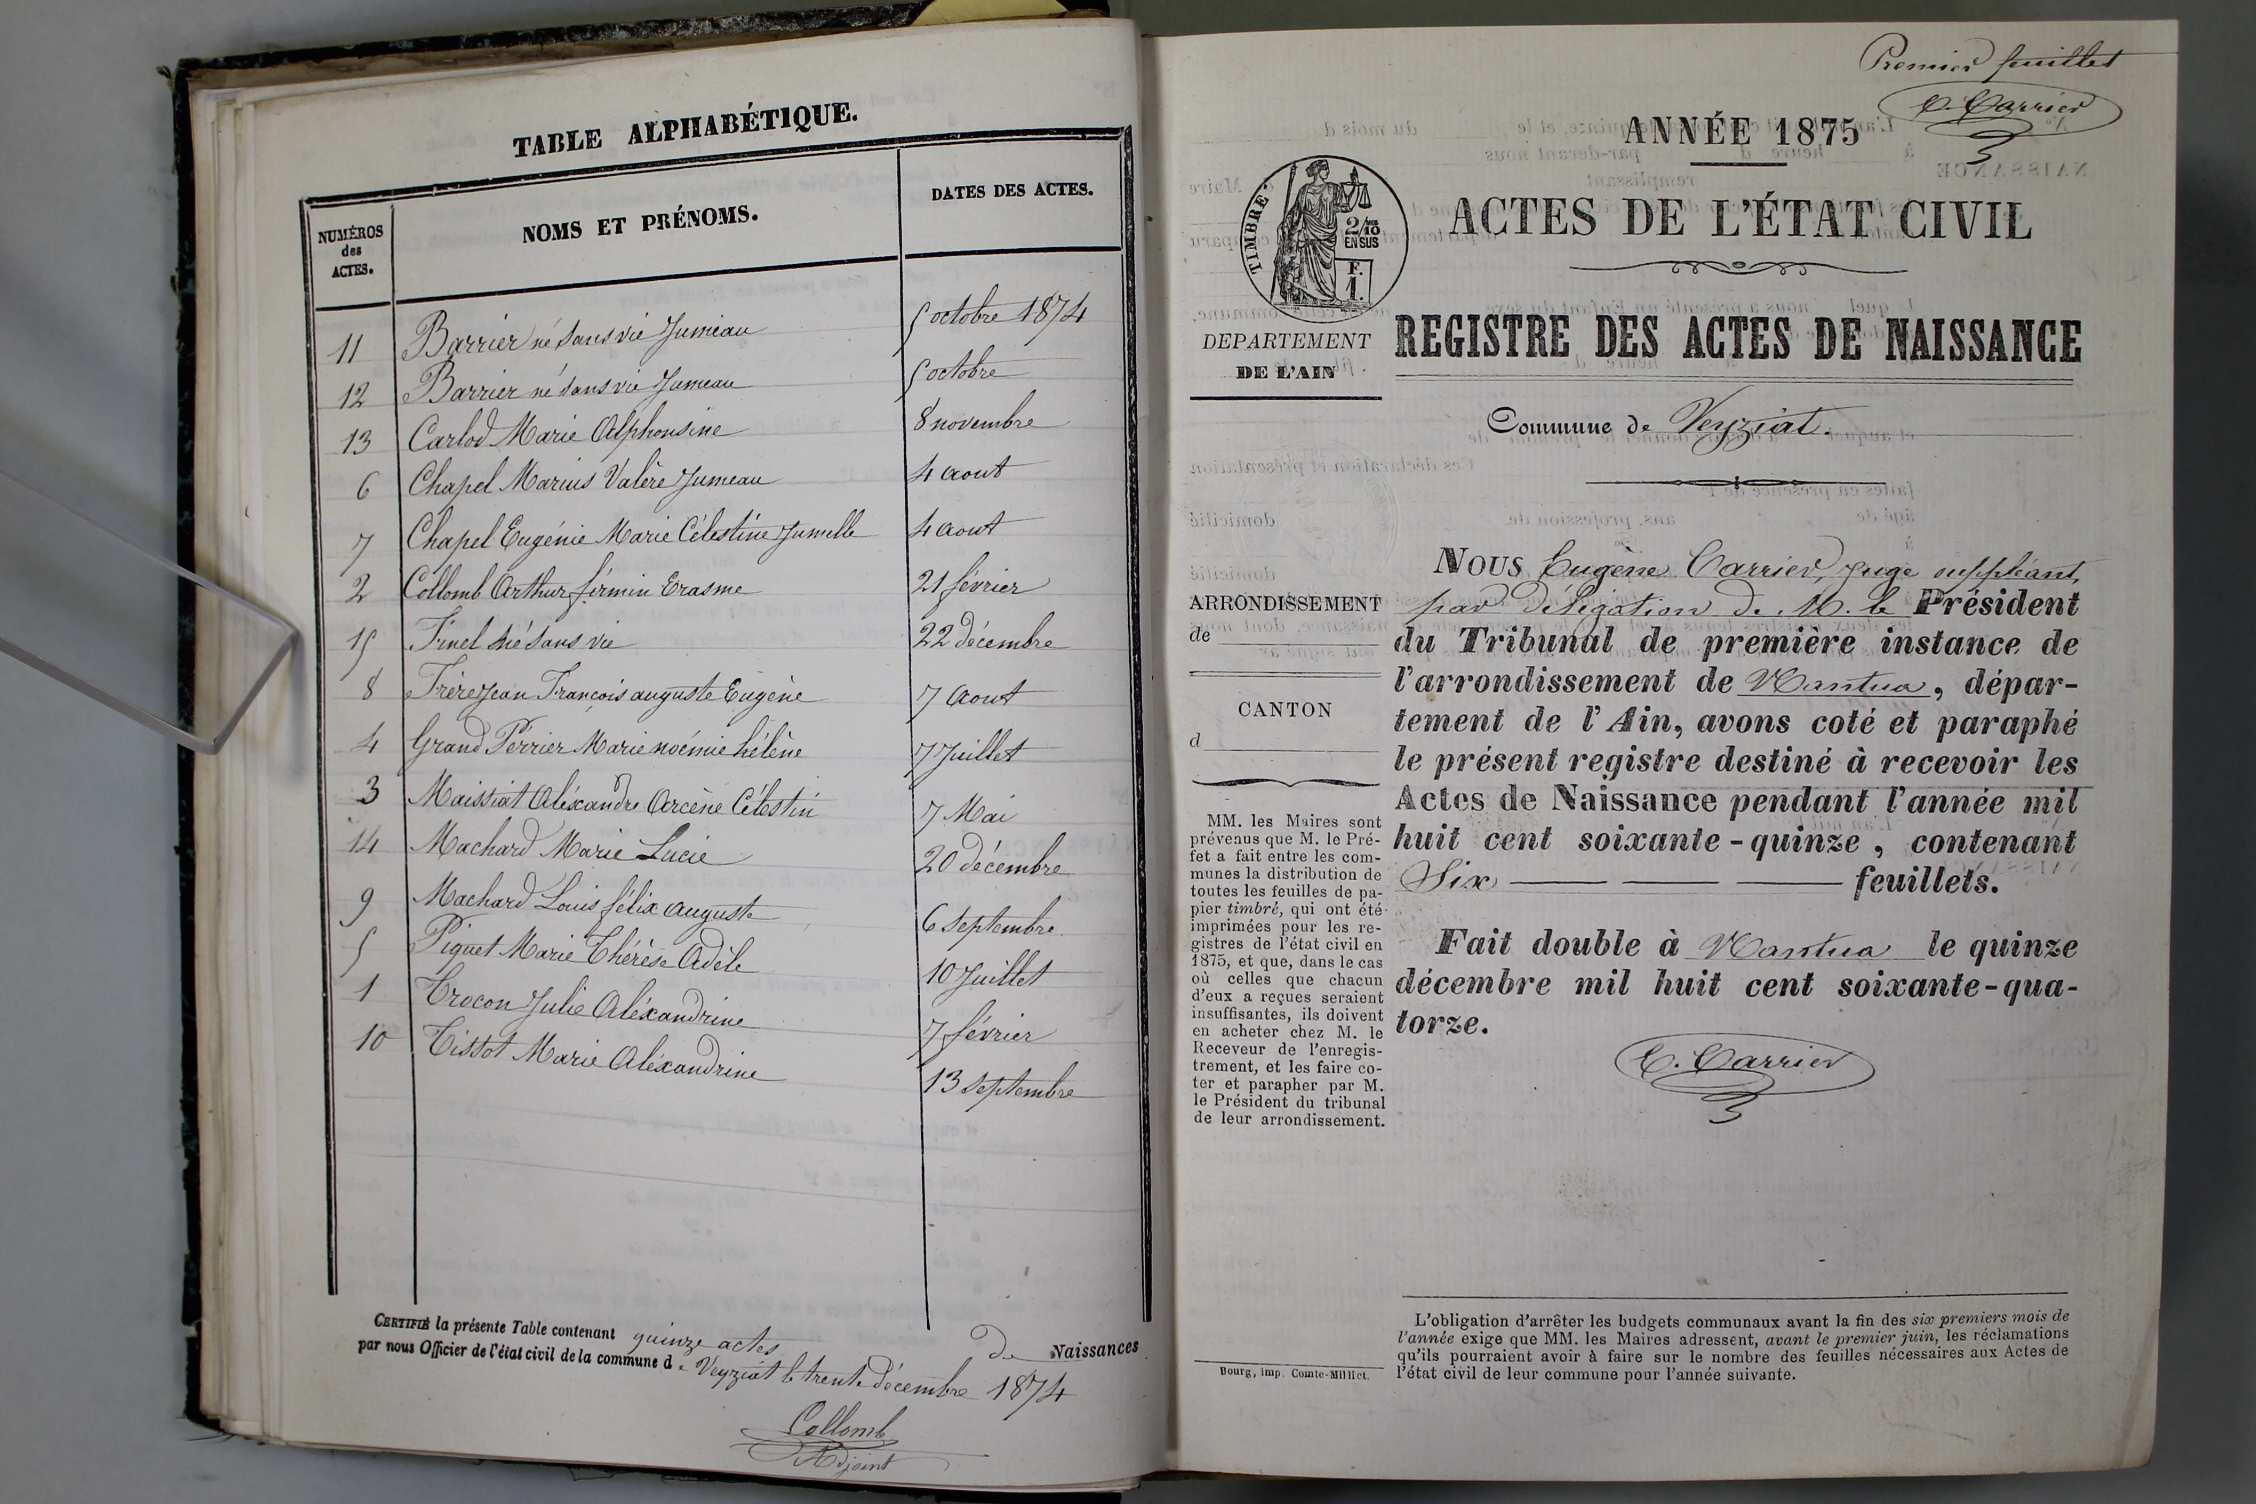 TABLE ALPHABÉTIQUE.
NUMÉROS
des
ACTES.
NOMS ET PRÉNOMS.
DATES DES ACTES.
11 Barrier né sans vie Jumeau 5 octobre 1874
12 Barrier né sans vie Jumeau 5 octobre
13 Carlod Marie Alphonsine 8 novembre
6 Chapel Marius Valère Jumeau 4 aout
7 Chapel Eugénie Marie Célestine Jumelle 4 aout
2 Collomb Arthur firmin Erasme 21 février
15 Finel né sans vie 22 décembre
8 Frèrejean François auguste Eugène 7 Aout
4 Grand Perrier Marie noémie hélène 7 Juillet
3 Maissiat Aléxandre Arcène Célestin 7 Mai
14 Machard Marie Lucie 20 décembre
9 Machard Louis félix auguste 6 septembre
5 Piquet Marie Thérèse Adèle 10 Juillet
1 Trocon Julie Aléxandrine 7 février
10 Tissot Marie Aléxandrine 13 septembre
CERTIFIÉ la présente Table contenant quinze actes de Naissances
par nous Officier de l'état civil de la commune de Veyziat le trente décembre 1874
Collomb
Adjoint
Premier feuillet
E. Carrier
ANNÉE 1875
ACTES DE L'ÉTAT CIVIL
TIMBRE
2/10
EN SUS
F.
1.
DEPARTEMENT
DE L'AIN
REGISTRE DES ACTES DE NAISSANCE
Commune de Veyziat.
ARRONDISSEMENT
de
CANTON
d
MM. les Maires sont
prévenus que M. le Pré-
fet a fait entre les com-
munes la distribution de
toutes les feuilles de pa-
pier timbré, qui ont été
imprimées pour les re-
gistres de l'état civil en
1875, et que, dans le cas
où celles que chacun
d'eux a reçues seraient
insuffisantes, ils doivent
en acheter chez M. le
Receveur de l'enregis-
trement, et les faire co-
ter et parapher par M.
le Président du tribunal
de leur arrondissement.
Bourg, imp. Comte-Milliet.
NOUS Eugène Carrier, juge suppléant,
par délégation de M. le Président
du Tribunal de première instance de
l'arrondissement de Nantua, dépar-
tement de l'Ain, avons coté et paraphé
le présent registre destiné à recevoir les
Actes de Naissance pendant l'année mil
huit cent soixante-quinze, contenant
Six feuillets.
Fait double à Nantua le quinze
décembre mil huit cent soixante-qua-
torze.
E. Carrier
L'obligation d'arrêter les budgets communaux avant la fin des six premiers mois de
l'année exige que MM. les Maires adressent, avant le premier juin, les réclamations
qu'ils pourraient avoir à faire sur le nombre des feuilles nécessaires aux Actes de
l'état civil de leur commune pour l'année suivante.